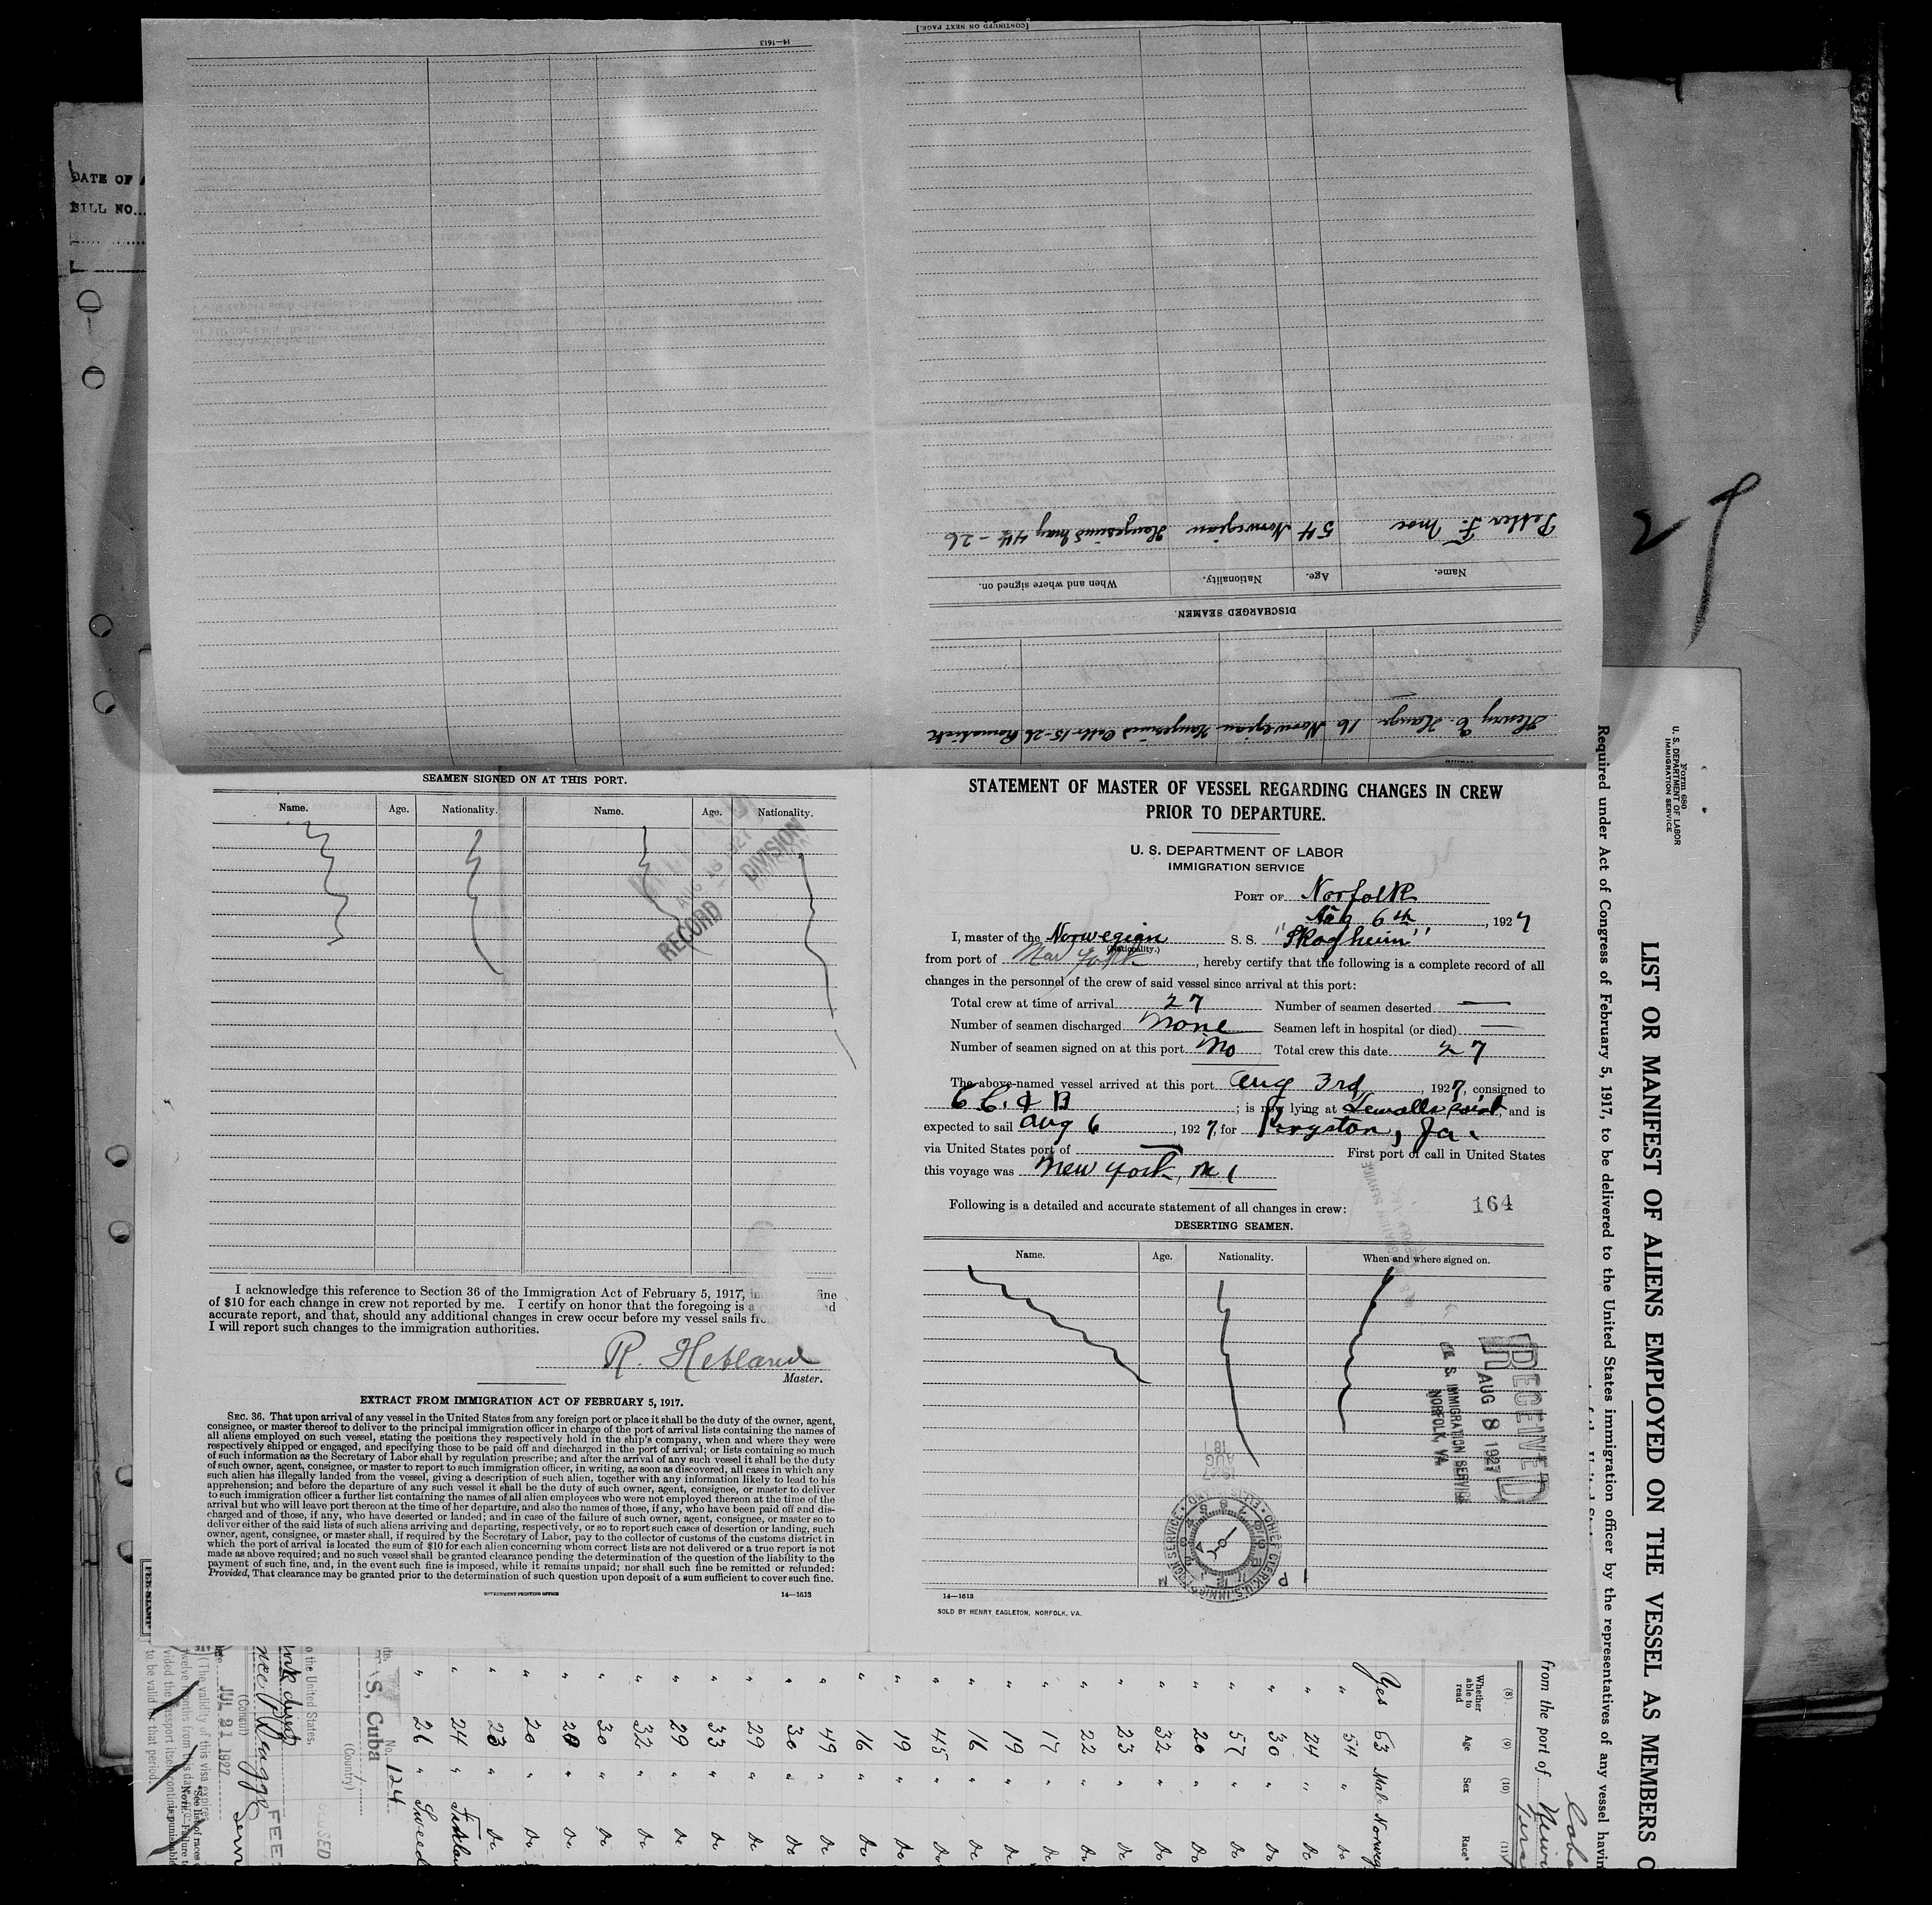 DATE OF
BILL NO.
14—1613
[CONTINUED ON NEXT PAGE.]
Henry E. Hauge 16 Norwegian Haugesund Octb. 15-26
DISCHARGED SEAMEN.
Name. Age. Nationality. When and where signed on.
Petter F. Moe 54 Norwegian Haugesund May 4th - 26
27
SEAMEN SIGNED ON AT THIS PORT.
Name. Age. Nationality. Name. Age. Nationality.
AUG 18 1927
RECORD DIVISION
I acknowledge this reference to Section 36 of the Immigration Act of February 5, 1917, fine
of $10 for each change in crew not reported by me. I certify on honor that the foregoing is a
accurate report, and that, should any additional changes in crew occur before my vessel sails
I will report such changes to the immigration authorities.
R. Hetland
Master.
EXTRACT FROM IMMIGRATION ACT OF FEBRUARY 5, 1917.
SEC. 36. That upon arrival of any vessel in the United States from any foreign port or place it shall be the duty of the owner, agent,
consignee, or master thereof to deliver to the principal immigration officer in charge of the port of arrival lists containing the names of
all aliens employed on such vessel, stating the positions they respectively hold in the ship's company, when and where they were
respectively shipped or engaged, and specifying those to be paid off and discharged in the port of arrival; or lists containing so much
of such information as the Secretary of Labor shall by regulation prescribe; and after the arrival of any such vessel it shall be the duty
of such owner, agent, consignee, or master to report to such immigration officer, in writing, as soon as discovered, all cases in which any
such alien has illegally landed from the vessel, giving a description of such alien, together with any information likely to lead to his
apprehension; and before the departure of any such vessel it shall be the duty of such owner, agent, consignee, or master to deliver
to such immigration officer a further list containing the names of all alien employees who were not employed thereon at the time of the
arrival but who will leave port thereon at the time of her departure, and also the names of those, if any, who have been paid off and dis-
charged and of those, if any, who have deserted or landed; and in case of the failure of such owner, agent, consignee, or master so to
deliver either of the said lists of such aliens arriving and departing, respectively, or so to report such cases of desertion or landing, such
owner, agent, consignee, or master shall, if required by the Secretary of Labor, pay to the collector of customs of the customs district in
which the port of arrival is located the sum of $10 for each alien concerning whom correct lists are not delivered or a true report is not
made as above required; and no such vessel shall be granted clearance pending the determination of the question of the liability to the
payment of such fine, and, in the event such fine is imposed, while it remains unpaid; nor shall such fine be remitted or refunded:
Provided, That clearance may be granted prior to the determination of such question upon deposit of a sum sufficient to cover such fine.
GOVERNMENT PRINTING OFFICE 14—1613
STATEMENT OF MASTER OF VESSEL REGARDING CHANGES IN CREW
PRIOR TO DEPARTURE.
U. S. DEPARTMENT OF LABOR
IMMIGRATION SERVICE
PORT OF Norfolk
Aug 6th, 1927
I, master of the Norwegian S. S. "Skogheim"
(Nationality.)
from port of New York, hereby certify that the following is a complete record of all
changes in the personnel of the crew of said vessel since arrival at this port:
Total crew at time of arrival 27 Number of seamen deserted —
Number of seamen discharged None Seamen left in hospital (or died) —
Number of seamen signed on at this port No Total crew this date 27
The above-named vessel arrived at this port Aug 3rd, 1927, consigned to
C. C. & B; is now lying at Sewalls Point, and is
expected to sail Aug 6, 1927, for Kingston, Ja.
via United States port of — First port of call in United States
this voyage was New York, N.Y.
Following is a detailed and accurate statement of all changes in crew: 164
DESERTING SEAMEN.
Name. Age. Nationality. When and where signed on.
RECEIVED
AUG 8 1927
U. S. IMMIGRATION SERVICE
NORFOLK, VA.
CHIEF CLERK U.S. IMMIGRATION SERVICE
14—1613
SOLD BY HENRY EAGLETON, NORFOLK, VA.
Form 680
U. S. DEPARTMENT OF LABOR
IMMIGRATION SERVICE
LIST OR MANIFEST OF ALIENS EMPLOYED ON THE VESSEL AS MEMBERS
Required under Act of Congress of February 5, 1917, to be delivered to the United States immigration officer by the representatives of any vessel
from the port of
(8) (9) (10) (11)
Whether able to read Age Sex Race*
Yes 63 Male Norweg
" 54 " Do
" 24 " Do
" 30 " Do
" 57 " Do
" 20 " Do
" 32 " Do
" 23 " Do
" 22 " Do
" 17 " Do
" 19 " Do
" 16 " Do
" 45 " Do
" 19 " Do
" 16 " Do
" 49 " Do
" 30 " Do
" 29 " Do
" 33 " Do
" 29 " Do
" 32 " Do
" 30 " Do
" 20 " Do
" 20 " Do
" 23 " Do
" 24 "
" 26 " Sweed
No. 124
S, Cuba
(Country)
o the United States,
(Consul)
JUL 21 1927
FEE STAMP